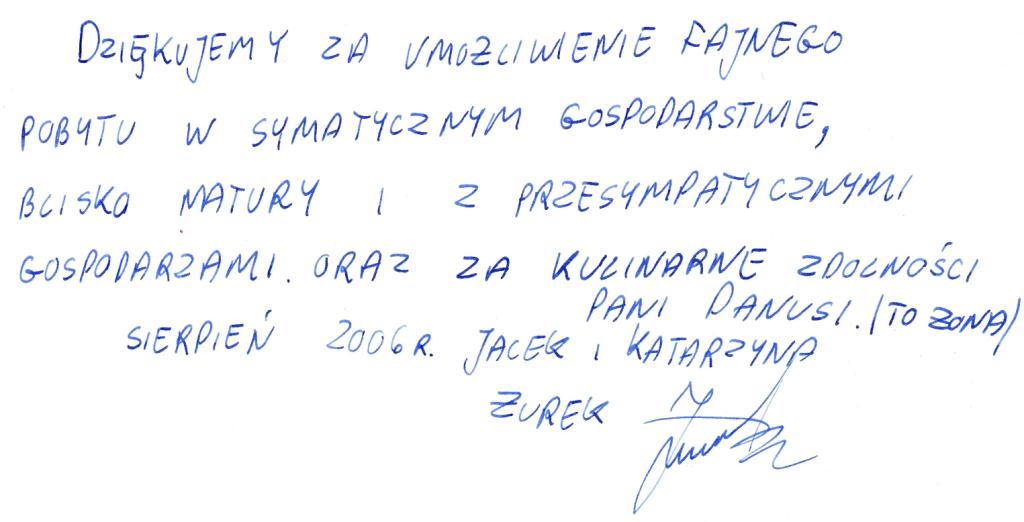 DZIĘKUJEMY ZA UMOZLIWIENIE FAJNEGO
POBYTU W SYMATYCZNYM GOSPODARSTWIE,
BLISKO NATURY I Z PRZESYMPATYCZNYMI
GOSPODARZAMI. ORAZ ZA KULINARNE ZDOLNOŚCI
PANI DANUSI. (TO ƵONA)
SIERPIEŃ 2006 R. JACEK i KATARZYNA
ƵUREK